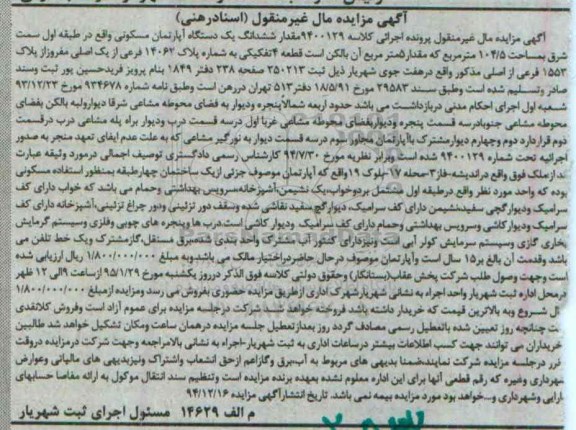 آگهی مزایده مال غیرمنقول (اسنادرهنی)
آگهی مزایده مال غیرمنقول پرونده اجرائی کلاسه ۹۴۰۰۱۲۹مقدار ششدانگ یک دستگاه آپارتمان مسکونی واقع در طبقه اول سمت
شرق بمساحت ۱۰۴/۵ مترمربع که مقدار۵متر مربع آن بالکن است قطعه ۴تفکیکی به شماره پلاک ۱۴۰۶۲ فرعی از یک اصلی مفروزاز پلاک
۱۵۵۳ فرعی از اصلی مذکور واقع درهفت جوی شهریار ذیل ثبت ۲۵۰۲۱۳ صفحه ۲۳۸ دفتر ۱۸۴۹ بنام پرویز فریدحسین پور ثبت وسند
صادر وتسلیم شده است وطبق سند ۲۹۵۸۳ مورخ ۱۸/۵/۹۱ دفتر۵۱۳ تهران دررهن است وطبق نامه شماره ۹۳۴۶۷۸ مورخ ۹۳/۱۲/۲۳
شعبه اول اجرای احکام مدنی دربازداشت می باشد حدود اربعه شمالاًپنجره ودیوار به فضای محوطه مشاعی شرقا دیواروبه بالکن بفضای
محوطه مشاعی جنوبادرسه قسمت پنجره ودیواربفضای محوطه مشاعی غربا اول درسه قسمت درب ودیوار براه پله مشاعی درب درقسمت
دوم قراردارد دوم وچهارم دیوارمشترک باآپارتمان مجاور سوم درسه قسمت دیوار به نورگیر مشاعی که به علت عدم ایفای تعهد منجر به صدور
اجرائیه تحت شماره ۹۴۰۰۱۲۹ شده است وبرابر نظریه مورخ ۹۴/۷/۳۰ کارشناس رسمی دادگستری توصیف اجمالی درمورد وثیقه عبارت
ازملک فوق واقع دراندیشه-فاز۳-محله ۱۷-بلوک ۱۹واقع که آپارتمان موصوف جزئی ازیک ساختمان چهارطبقه بمنظور استفاده مسکونی
بوده که واحد مورد نظر واقع درطبقه اول مشتمل بردوخواب،یک نشیمن،آشپزخانه،سرویس بهداشتی وحمام می باشد که خواب دارای کف
سرامیک ودیوارگچی سفید،نشیمن دارای کف سرامیک، دیوار گچ سفید نقاشی شده وسقف دور تزئینی ودور چراغ تزئینی،آشپزخانه دارای کف
سرامیک ودیوارکاشی وسرویس بهداشتی وحمام دارای کف سرامیک ودیوار کاشی است.درب ها وپنجره های چوبی وفلزی وسیستم گرمایش
بخاری گازی وسیستم سرمایش کولر آبی است ونیزدارای کنتور آب مشترک واحد بندی شده،برق مستقل،گازمشترک ویک خط تلفن می
باشد وقدمت آن بالغ بر۱۵ سال است وآپارتمان موصوف درحال حاضردراختیار مالک می باشدوبه مبلغ ۱/۸۰۰/۰۰۰/۰۰۰ ریال ارزیابی شده
است وجهت وصول طلب شرکت پخش عقاب(بستانکار) وحقوق دولتی کلاسه فوق الذکر درروز یکشنبه مورخ ۹۵/۱/۲۹ ازساعت ۹الی ۱۲ ظهر
درمحل اداره ثبت شهریار واحد اجراء به نشانی شهریارشهرک اداری ازطریق مزایده حضوری بفروش می رسد ومزایده ازمبلغ ۱/۸۰۰/۰۰۰/۰۰۰
ریال شروع وبه بالاترین قیمت که خریدار داشته باشد فروخته خواهد شد،شرکت درجلسه مزایده برای عموم آزاد است وفروش کلانقدی
است چنانچه روز تعیین شده باتعطیل رسمی مصادف گردد روز بعدازتعطیل جلسه مزایده درهمان ساعت ومکان تشکیل خواهد شد طالبین
خریداران می توانند جهت کسب اطلاعات بیشتر درساعات اداری به ثبت شهریار-اجراء به نشانی بالامراجعه وجهت شرکت درمزایده دروقت
مقرر درجلسه مزایده شرکت نمایند،ضمنا بدیهی های مربوط به آب،برق وگازاعم ازحق انشعاب واشتراک ونیزبدیهی های مالیاتی وعوارض
شهرداری وغیره که رقم قطعی آنها برای این اداره معلوم نشده بعهده برنده مزایده است وتنظیم سند انتقال موکول به ارائه مفاصا حسابهای
دارایی وشهرداری و...خواهد بود مورد مزایده بیمه نمی باشد. تاریخ انتشارآگهی مزایده ۹۴/۱۲/۱۶
م الف ۱۴۶۲۹ مسئول اجرای ثبت شهریار